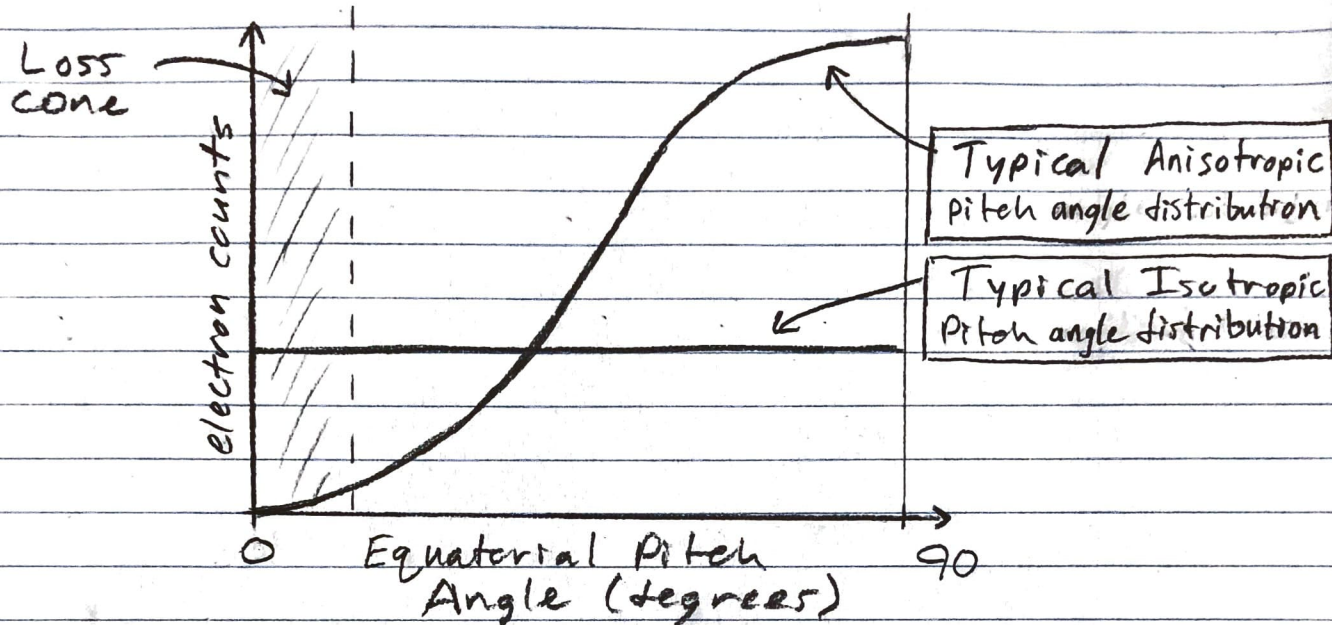 Loss
cone
electron counts
Typical Anisotropic
pitch angle distribution
Typical Isotropic
Pitch angle distribution
0
Equatorial Pitch
90
Angle (degrees)